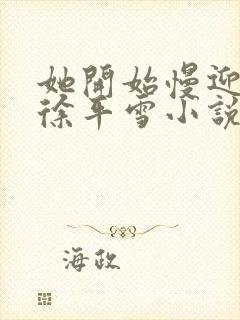 她開始慢迎
徐平雪小說
海政